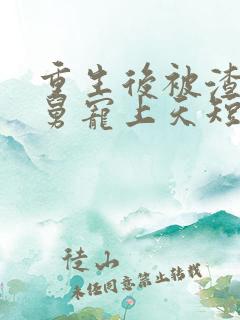 重生後被渣
舅寵上天短
徒山
未經同意禁止轉載